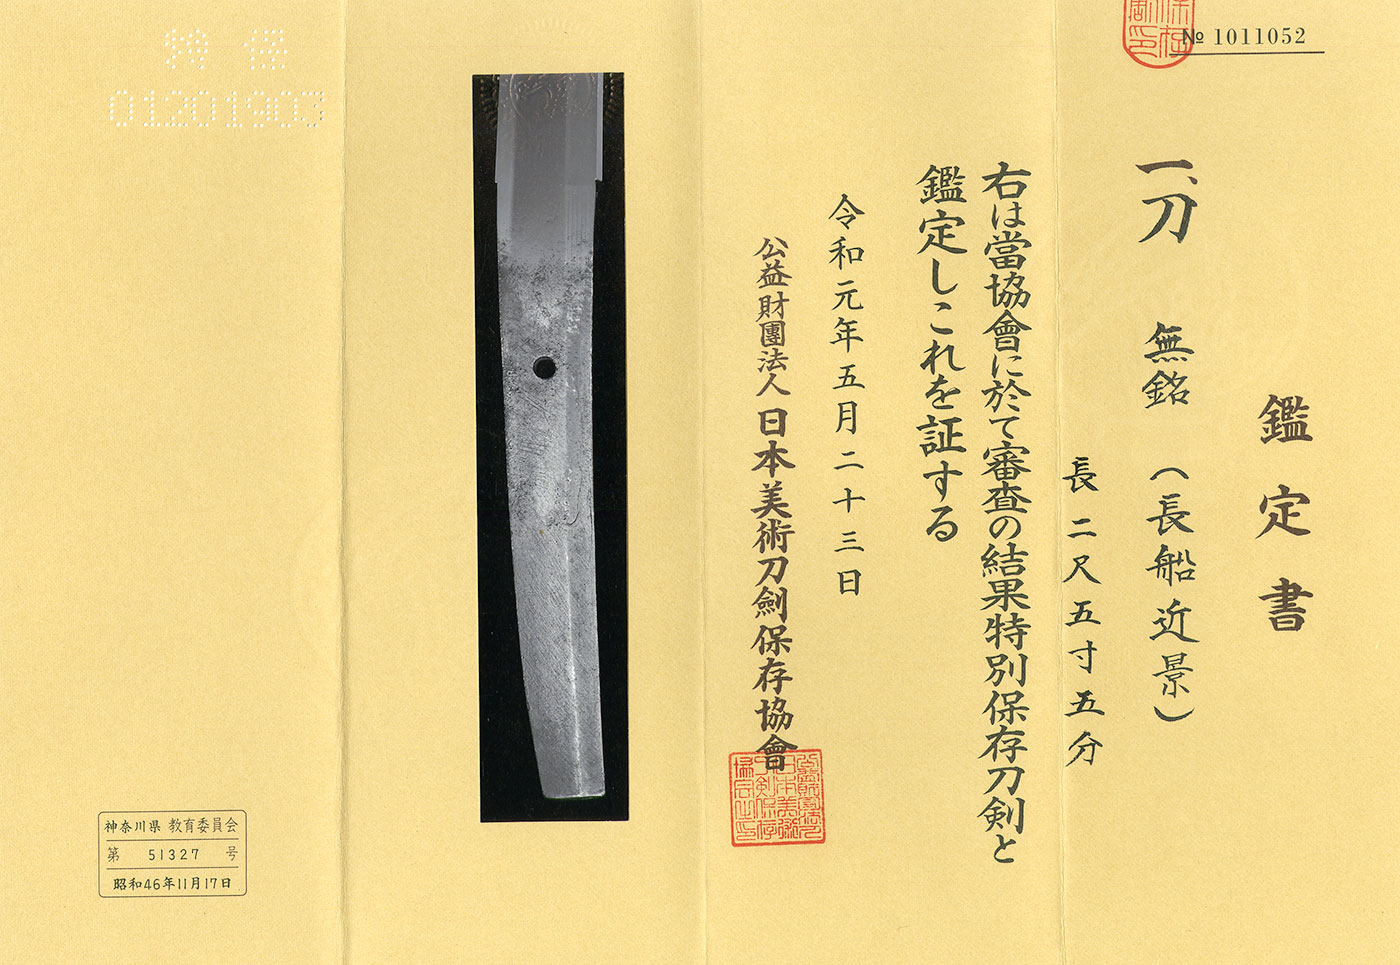 № 1011052
鑑定書
一、刀 無銘(長船近景)
長二尺五寸五分
右は當協會に於て審査の結果特別保存刀剣と
鑑定しこれを証する
令和元年五月二十三日
公益財團法人日本美術刀劍保存協會
特保
01201903
神奈川県教育委員会
第 51327 号
昭和46年11月17日